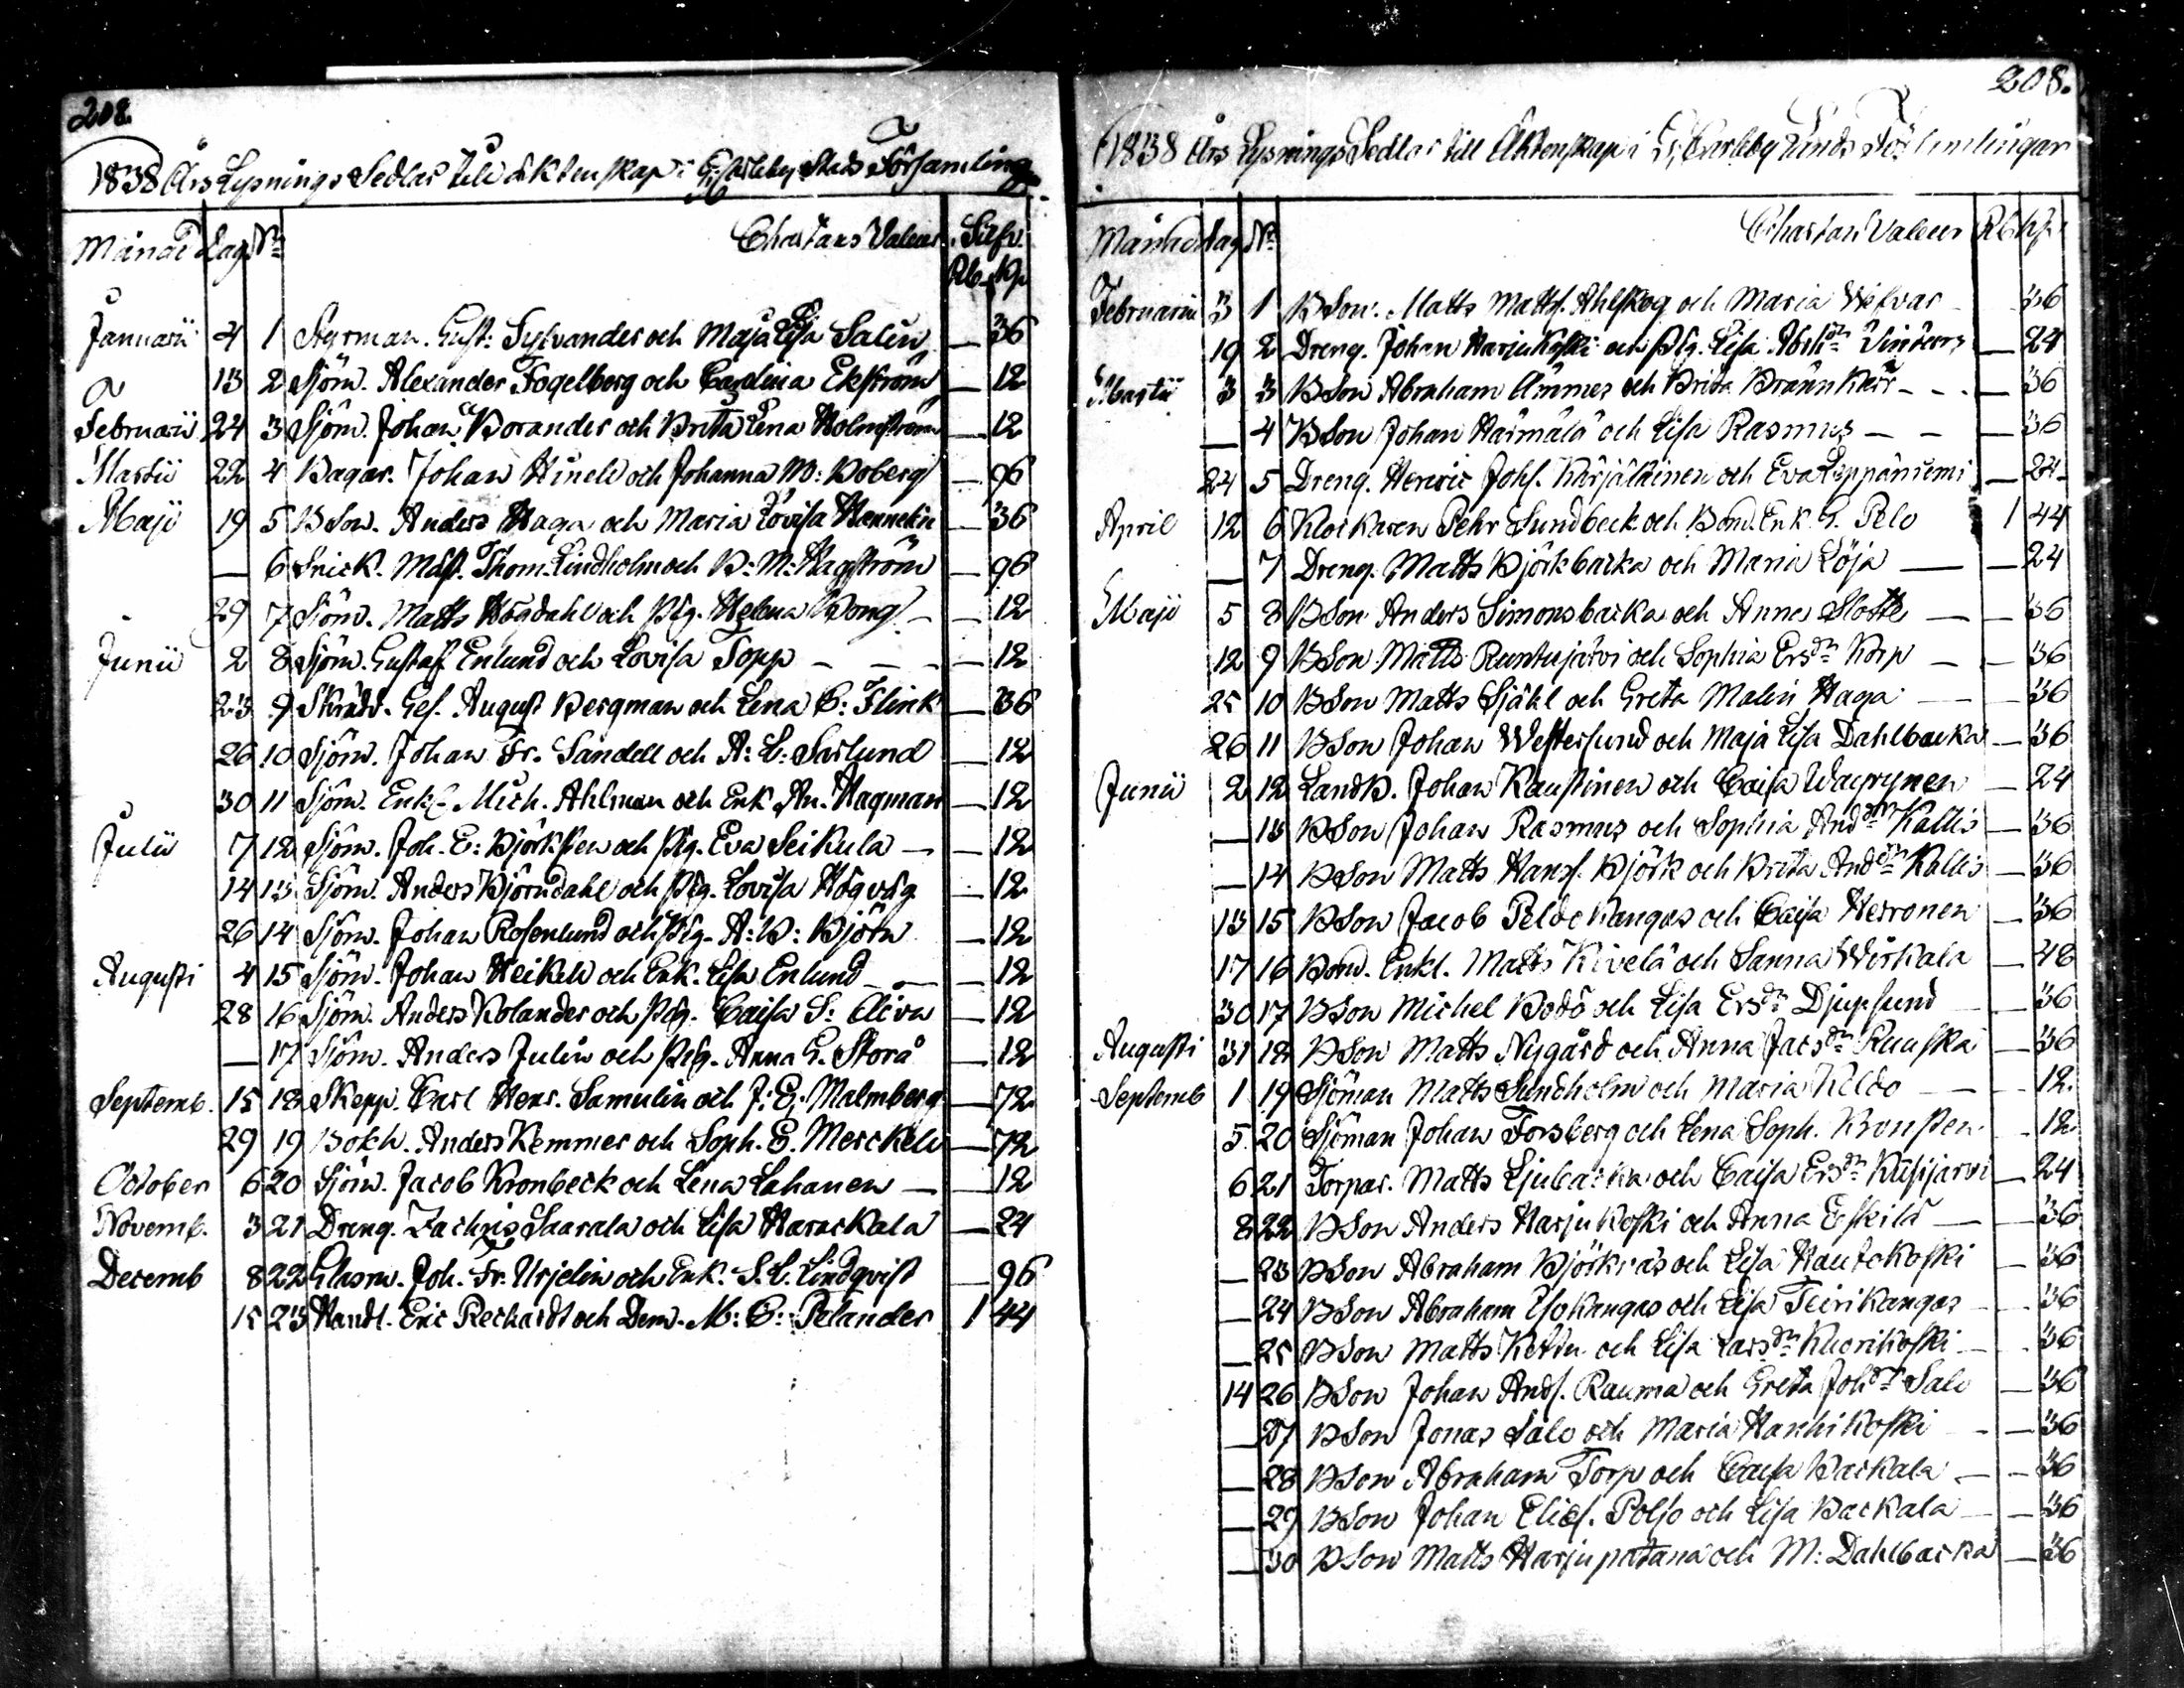 208.
1838 Års Lysnings Sedlar till äktenskap i G: Carleby Stads Församling
Månad Dag No Chartans Valeur Silfv.
Rb. Kp
Januarii 4 1 Styrman. Gust: Sylvander och Maja Lisa Salin — 36
13 2 Sjöm. Alexander Fogelberg och Carolina Ekström — 12
Februarii 24 3 Sjöm. Johan Borander och Brita Lena Holmström — 12
Martii 22 4 Bagar. Johan och Johanna M: Boberg — 96
Maji 19 5 BSon. Anders Haga och Maria Lovisa Hannelin — 36
— 6 Snick. Mäst. Thom. Lindholm och B: M: Hagström — 96
29 7 Sjöm. Matts Högdahl och Pig. Helena Bong — — 12
Junii 2 8 Sjöm. Gustaf Enlund och Lovisa Topp — — — — 12
23 9 Skrädd. Ges. August Bergman och Lena C: Flink — 36
26 10 Sjöm. Johan Fr. Sandell och A: L: Sarlund — 12
30 11 Sjöm. Enkl. Mich. Ahlman och Enk. An. Hagman — 12
Julii 7 12 Sjöm. Joh. E: Björksten och Pig. Eva Seikula — — 12
14 13 Sjöm. Anders Björndahl och Pig. Lovisa Högväg — 12
26 14 Sjöm. Johan Rosenlund och Pig. A: B: Björn — 12
Augusti 4 15 Sjöm. Johan Heikell och Enk. Lisa Enlund — — 12
28 16 Sjöm. Anders Rolander och Pig. Caisa S: — 12
— 17 Sjöm. Anders Julin och Pig. Anna G. Storå — 12
Septemb. 15 18 Skepp. Carl Henr. Samulin och J: E: Malmberg — 72
29 19 Bokh. Anders Kemmer och Soph. E. Merckell — 72
October 6 20 Sjöm. Jacob Kronbeck och Lena Lahanen — — 12
Novemb. 3 21 Dreng. Zachris Saarala och Lisa Harackala — 24
Decemb 8 22 Glasm. Joh. Fr. Urjelin och Enk. S. L. Lindqvist — 96
15 23 Handl. Eric Reckardt och Dem. M: C: Pelander 1 44
208.
1838 Års Lysnings Sedlar till Äktenskap i G: Carleby Lands Församlingar
Månad Dag No Chartans Valeur Rb Kp
Februarii 3 1 BSon. Matts Matts. Ahlskog och Maria Wefvar — 36
19 2 Dreng. Johan Harjukoski och Pig. Lisa Abrhdr — 24
Martii 3 3 BSon Abraham Ämmes och Brita Brännkärr — — — 36
— 4 BSon Johan Härmälä och Lisa Rasmus — — — 36
24 5 Dreng. Henric Johs. Karjalainen och Eva Leppäniemi — 24
April 12 6 Klockaren Pehr Sundbeck och Bond. Enk. G. Pelo 1 44
— 7 Dreng. Matts Björkbacka och Maria Löja — — 24
Maji 5 8 BSon Anders Simonsbacka och Anna Slotte — — 36
12 9 BSon Matts Runtujärvi och Sophia Ersdr Korp — — 36
25 10 BSon Matts Sjähl och Greta Malin Haga — — 36
26 11 BSon Johan Westersund och Maja Lisa Dahlbacka — 36
Junii 2 12 LandB. Johan Kaustinen och Caisa Wayrynen — 24
— 13 BSon Johan Rasmus och Sophia Anddr Kallis — 36
— 14 BSon Matts Hans. Björk och Brita Anddr Kallis — 36
13 15 BSon Jacob Peldokangas och Caisa Herronen — 36
17 16 Bond. Enkl. Matts Kivelä och Sanna Wirkala — 48
30 17 BSon Michel Bodö och Lisa Ersdr Djupsund — 36
Augusti 31 18 BSon Matts Nygård och Anna Jacsdr Ruuska — 36
Septemb 1 19 Sjöman Matts Sundholm och Maria — 12.
5 20 Sjöman Johan Forsberg och Lena Soph. Kronsten — 12
6 21 Torpar. Matts Ljubacka och Caisa Ersdr — 24
8 22 BSon Anders Harjukoski och Anna Eskilä — — 36
— 23 BSon Abraham Björknäs och Lisa Hautokoski — 36
— 24 BSon Abraham Isokangas och Lisa Teirikangas — — 36
— 25 BSon Matts Kettu och Lisa Larsdr Kuorikoski — 36
14 26 BSon Johan Ands. Rauma och Greta Johdr Salo — 36
— 27 BSon Jonas Salo och Maria Hanhikoski — — 36
— 28 BSon Abraham Torp och Caisa Backala — — 36
— 29 BSon Johan Elies. Polso och Lisa Backala — — 36
— 30 BSon Matts Harjupatana och M: Dahlbacka — 36